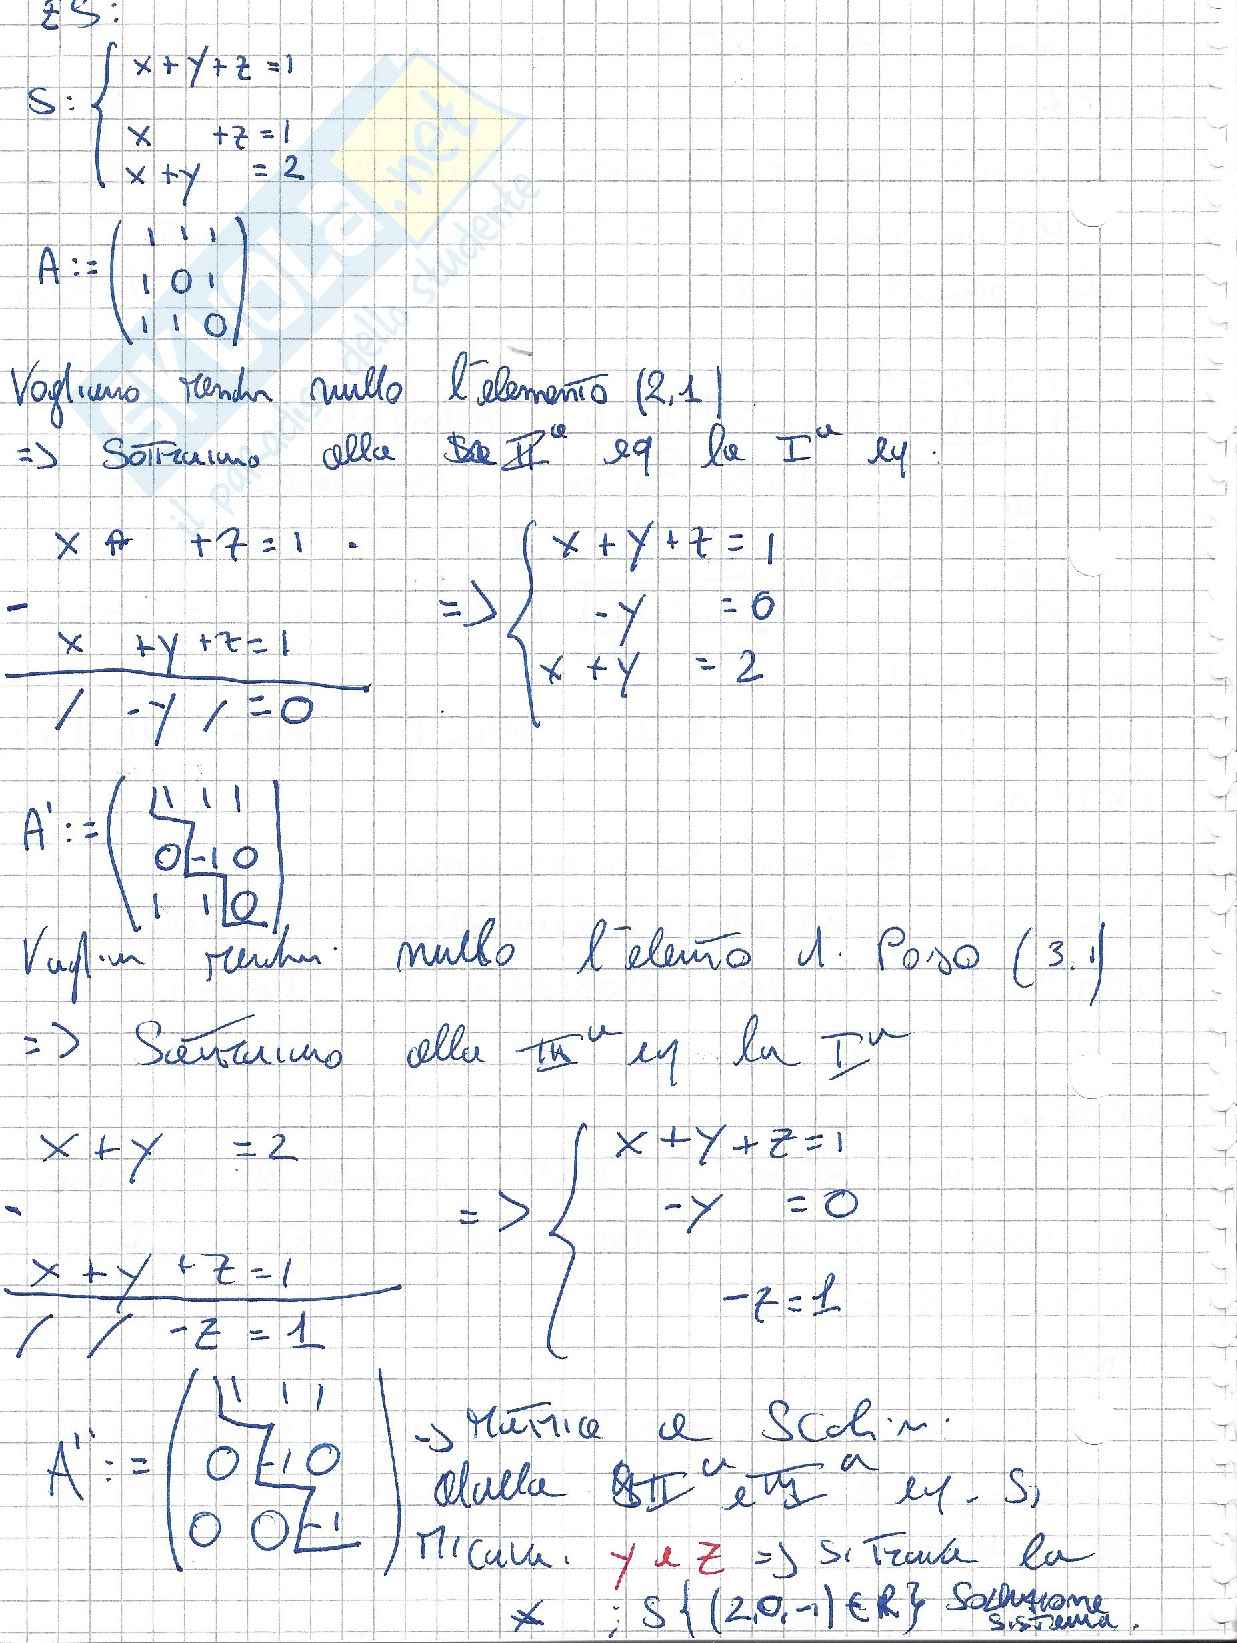 ES:
S: { x+y+z=1
x +z=1
x+y =2
A:= ( 1 1 1
1 0 1
1 1 0 )
Vogliamo nullo l'elemento (2,1)
=> Sottraiamo alla IIª eq la Iª eq.
x +z=1
-
x +y+z=1
/ -y / =0
=> { x+y+z=1
-y =0
x+y =2
A':= ( 1 1 1
0 -1 0
1 1 0 )
nullo l'elemento di Posto (3,1)
=> Sottraiamo alla IIIª eq la Iª
x+y =2
-
x+y+z=1
/ / -z=1
=> { x+y+z=1
-y =0
-z=1
A'':= ( 1 1 1
0 -1 0
0 0 -1 )
-> Matrice a Scalini
dalla IIª e IIIª eq. si
ricava y e z => si trova la
x ; S{(2,0,-1)∈R} Soluzione
sistema.
SKUOLA.net
il paradiso dello studente